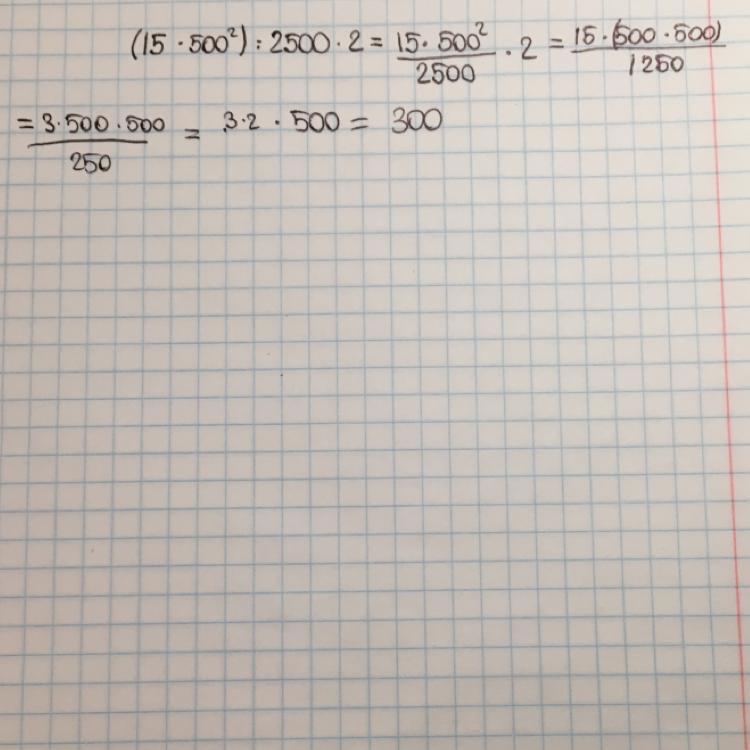 (15 · 500²) : 2500 · 2 = 15 · 500² / 2500 · 2 = 15 · (500 · 500) / 1250
= 3 · 500 · 500 / 250 = 3 · 2 · 500 = 300